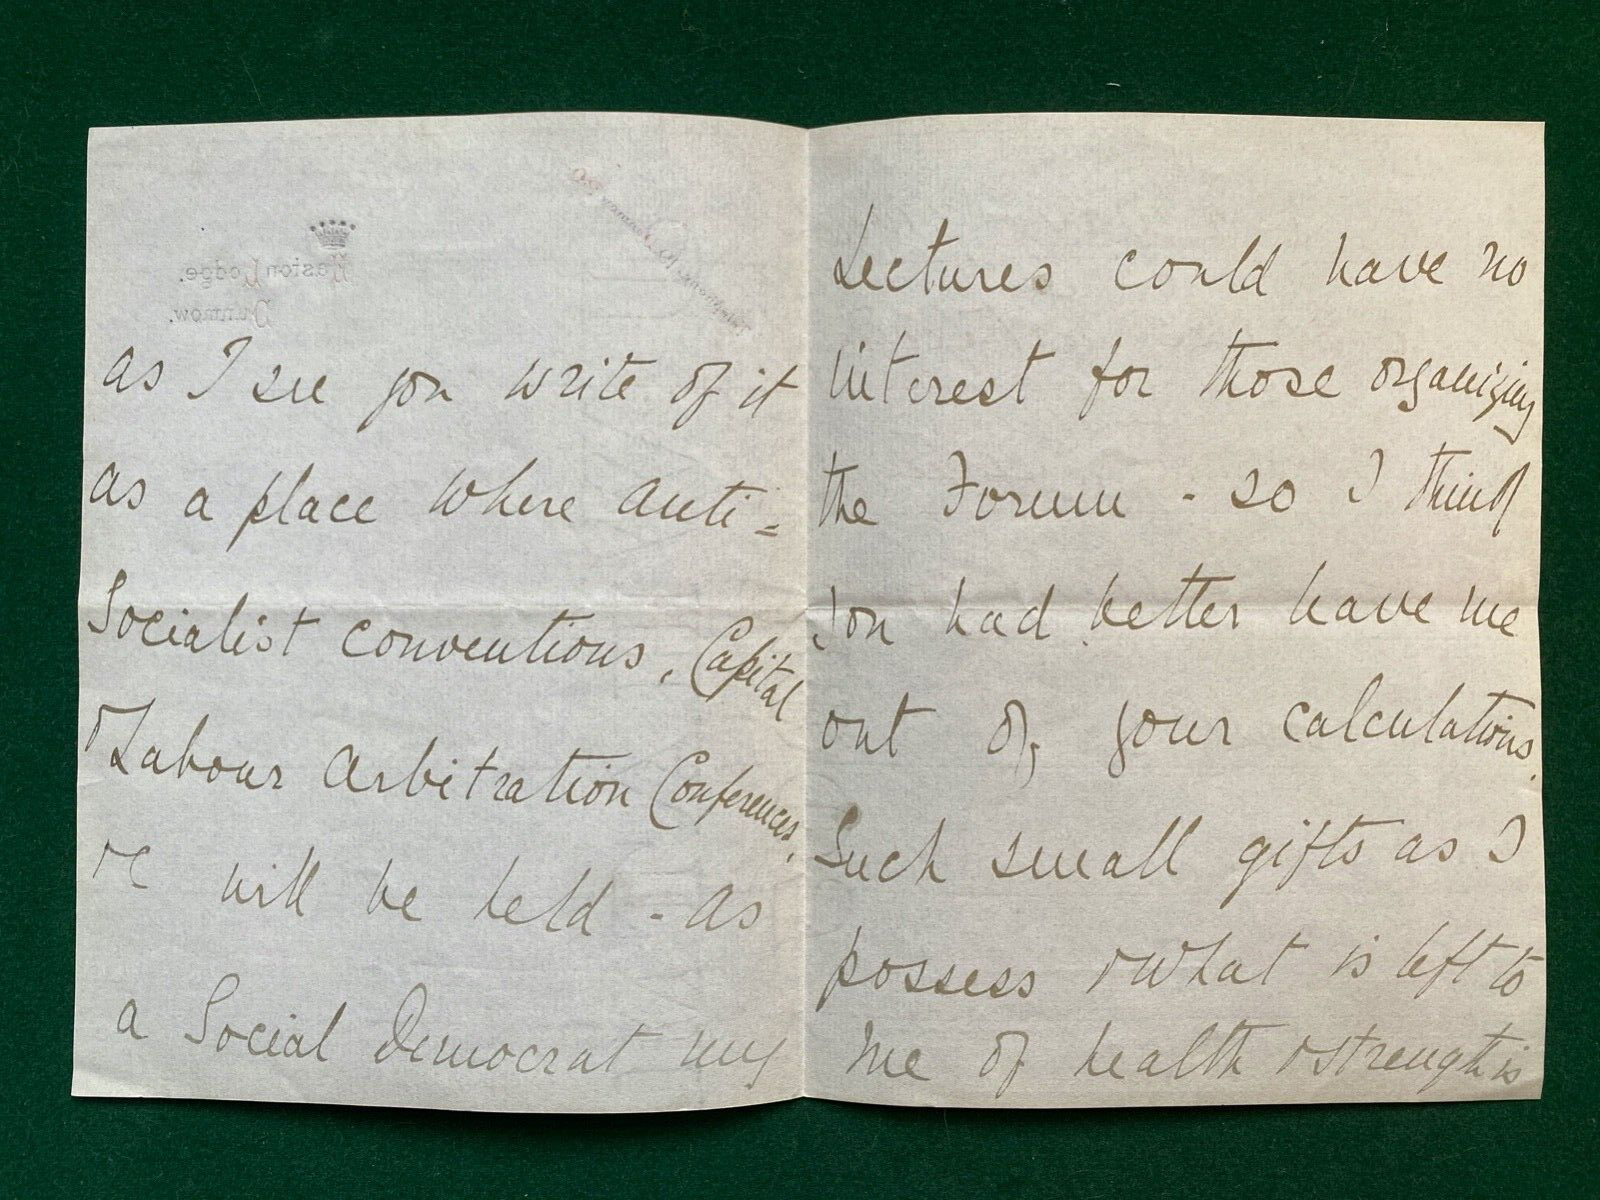 Telephone, 10, Dunmow.
Easton Lodge.
Dunmow.
as I see you write of it
as a place where Anti=
Socialist conventions, Capital
& Labour Arbitration Conferences,
&c will be held - As
a Social Democrat my
Lectures could have no
interest for those organizing
the Forum - so I think
you had better leave me
out of your calculations.
Such small gifts as I
possess & what is left to
me of health & strength is